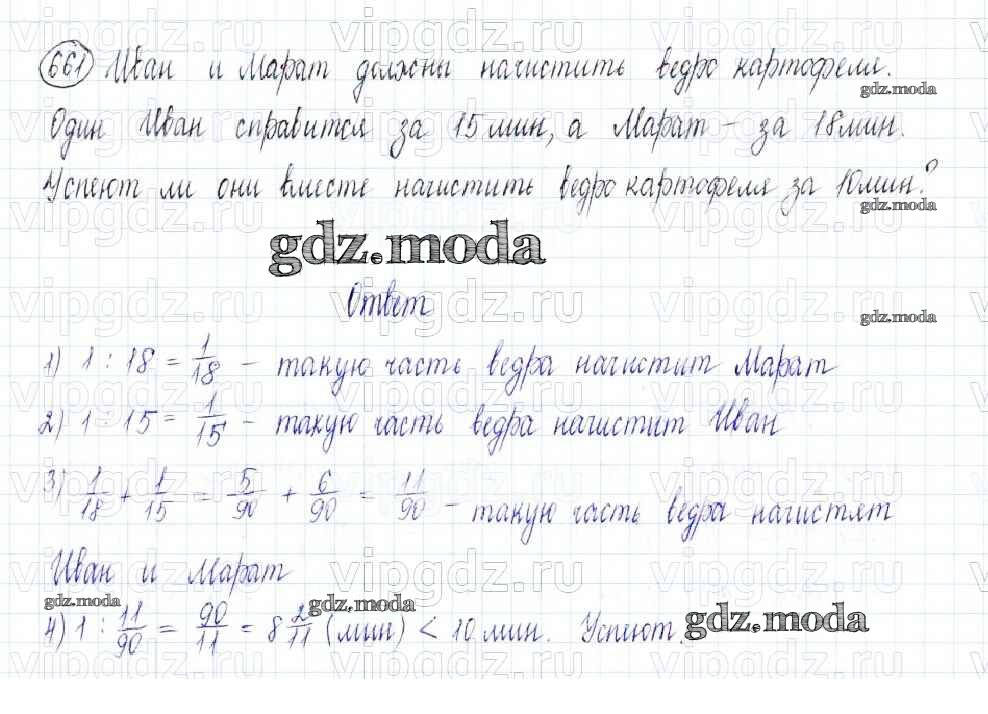 661 Иван и Марат должны начистить ведро картофеля.
Один Иван справится за 15 мин, а Марат – за 18 мин.
Успеют ли они вместе начистить ведро картофеля за 10 мин?
gdz.moda
Ответ
1) 1 : 18 = 1/18 – такую часть ведра начистит Марат
2) 1 : 15 = 1/15 – такую часть ведра начистит Иван
3) 1/18 + 1/15 = 5/90 + 6/90 = 11/90 – такую часть ведра начистят
Иван и Марат
4) 1 : 11/90 = 90/11 = 8 2/11 (мин) < 10 мин. Успеют.
gdz.moda
gdz.moda
gdz.moda
gdz.moda
gdz.moda
gdz.moda
vipgdz.ru